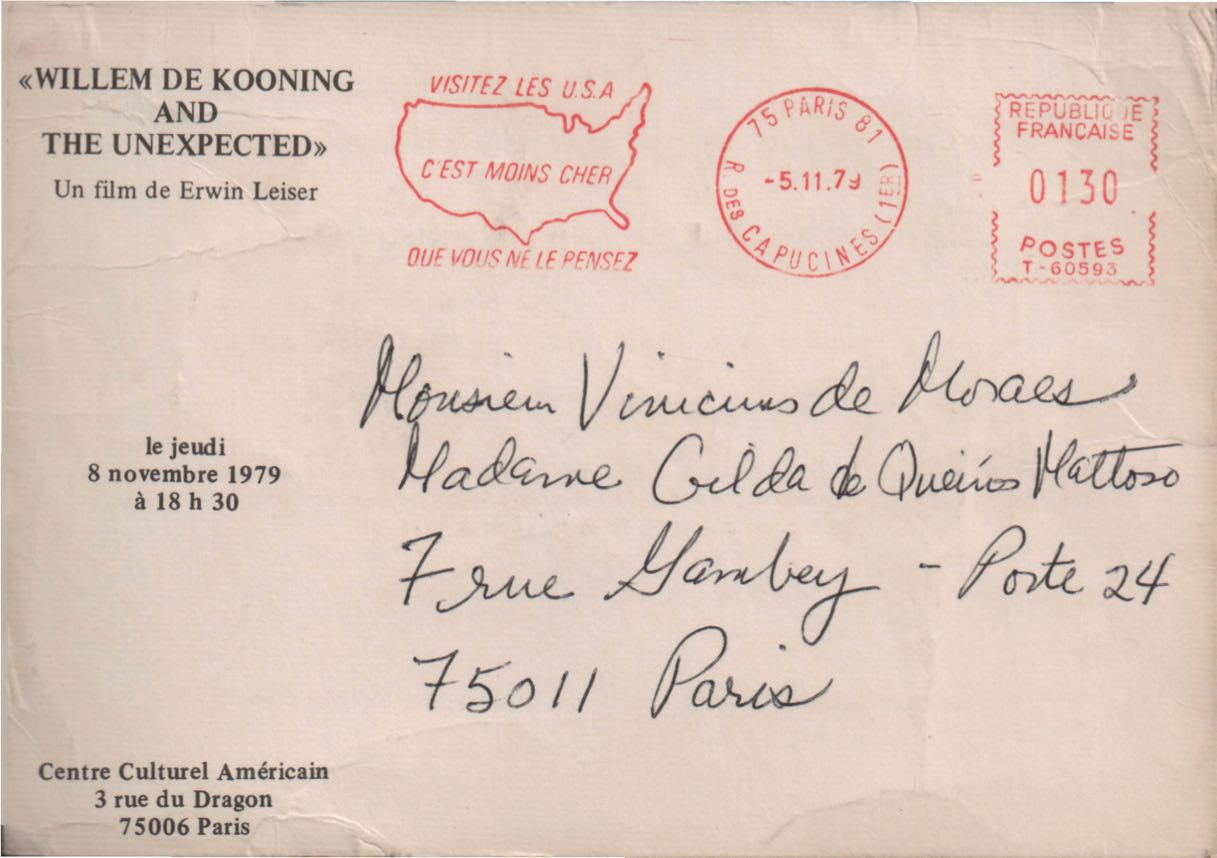 «WILLEM DE KOONING
AND
THE UNEXPECTED»
Un film de Erwin Leiser
VISITEZ LES U.S.A
C'EST MOINS CHER
QUE VOUS NE LE PENSEZ
75 PARIS 81
-5.11.79
R. DES CAPUCINES (1ER)
REPUBLIQUE
FRANCAISE
0130
POSTES
T-60593
Monsieur Vinicius de Moraes
Madame Gilda de Queirós Mattoso
7 rue Gambey - Porte 24
75011 Paris
le jeudi
8 novembre 1979
à 18 h 30
Centre Culturel Américain
3 rue du Dragon
75006 Paris